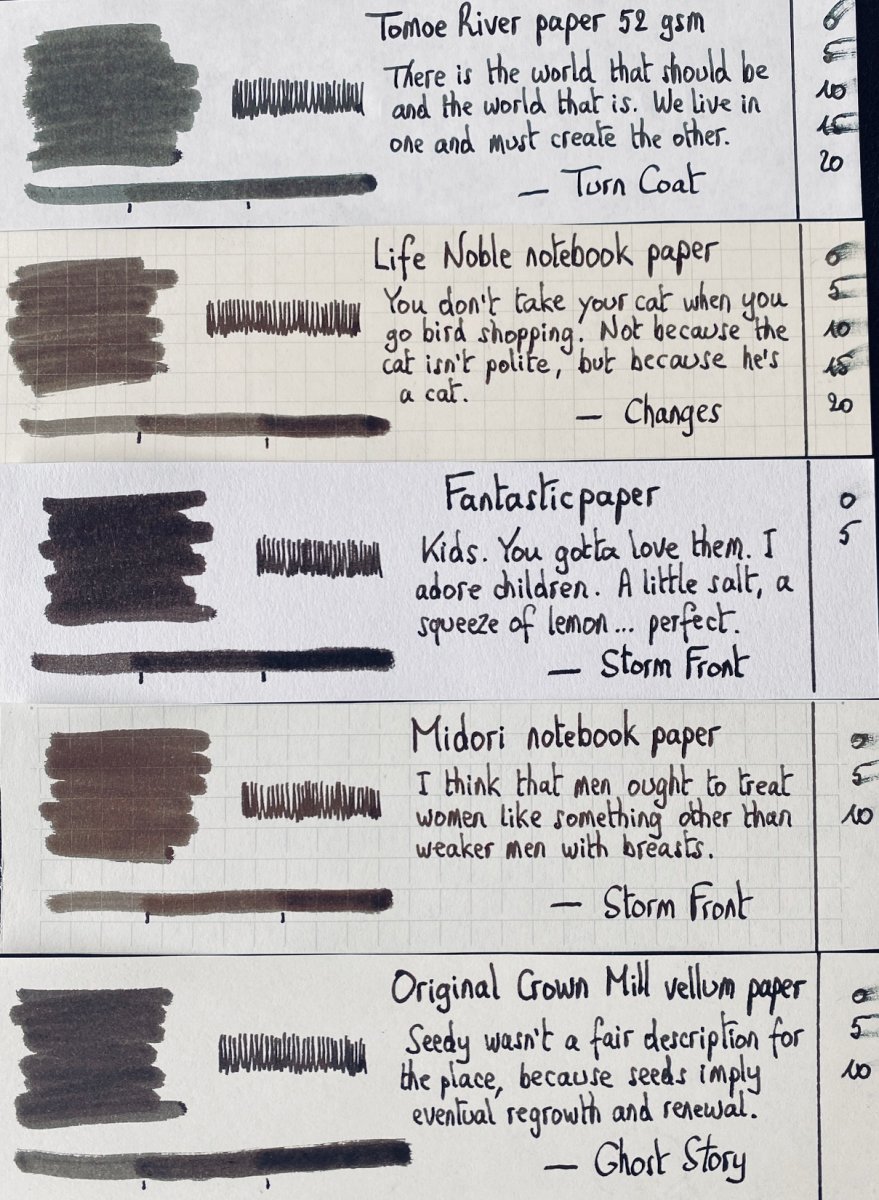 Tomoe River paper 52 gsm
There is the world that should be
and the world that is. We live in
one and must create the other.
— Turn Coat
0
5
10
15
20
Life Noble notebook paper
You don't take your cat when you
go bird shopping. Not because the
cat isn't polite, but because he's
a cat.
— Changes
0
5
10
15
20
Fantasticpaper
Kids. You gotta love them. I
adore children. A little salt, a
squeeze of lemon... perfect.
— Storm Front
0
5
Midori notebook paper
I think that men ought to treat
women like something other than
weaker men with breasts.
— Storm Front
0
5
10
Original Crown Mill vellum paper
Seedy wasn't a fair description for
the place, because seeds imply
eventual regrowth and renewal.
— Ghost Story
0
5
10